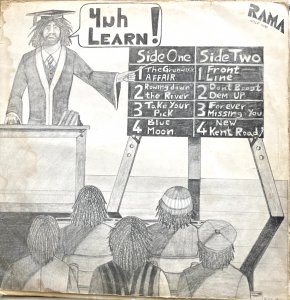 Yuh
LEARN!
RAMA
Side One
1 The Grunwick
AFFAIR
2 Rowing down
the River
3 Take Your
Pick
4 Blue
Moon
Side Two
1 Front
Line
2 Dont Boost
Dem UP
3 For ever
Missing You
4 New
Kent Road